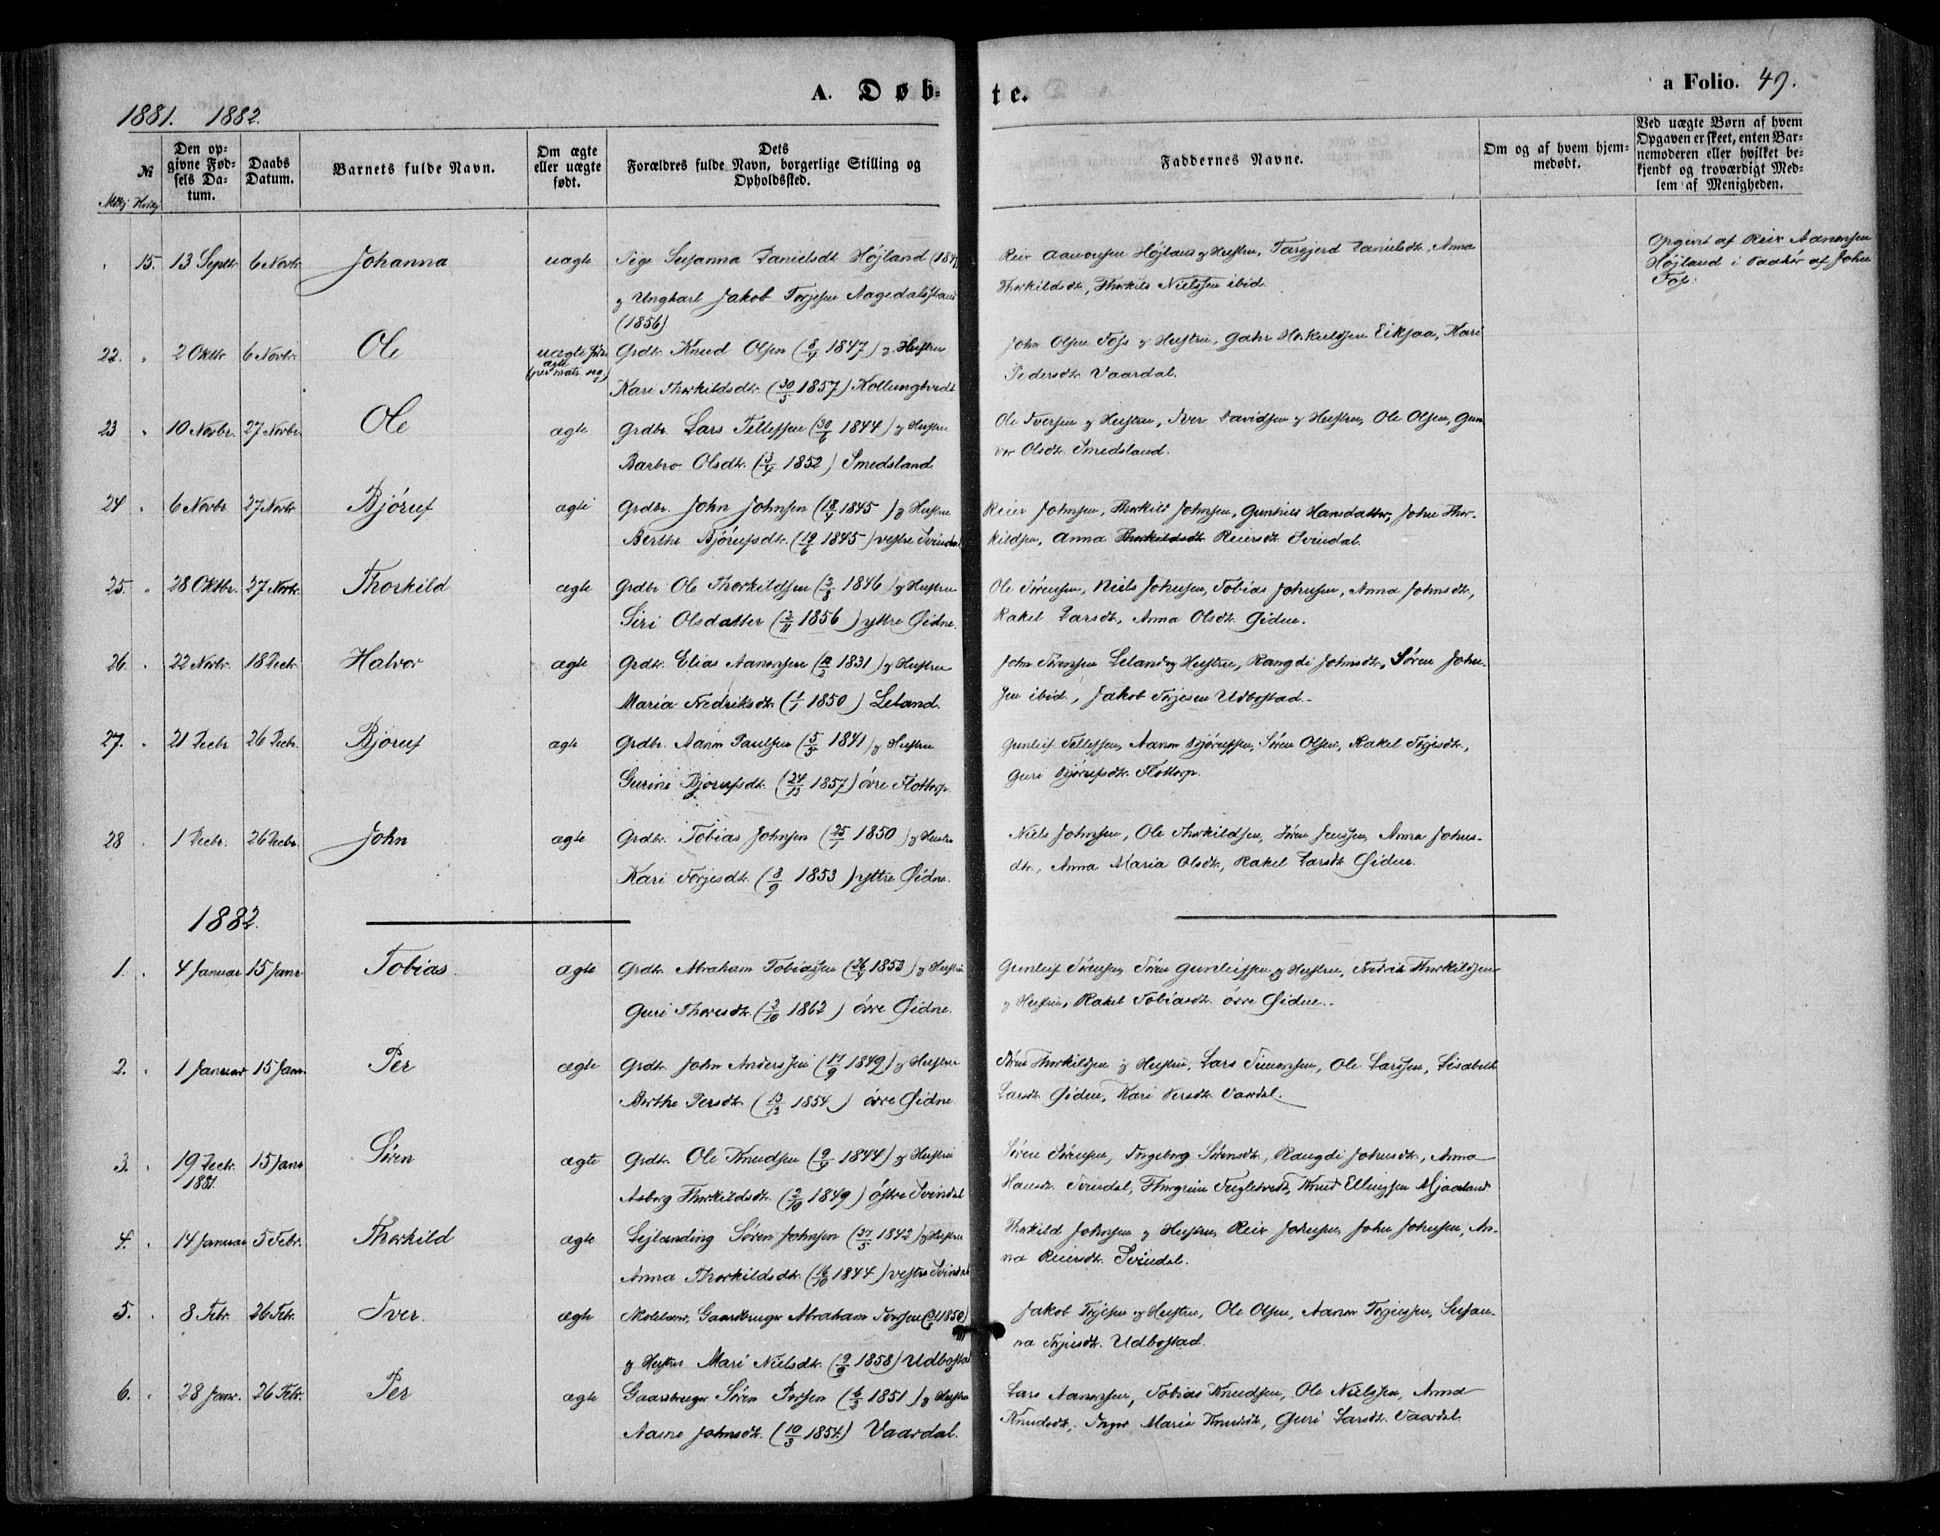 A. Døb-
te.
a Folio. 49.
1881. 1882.
№
Den op-
givne Fød-
sels Da-
tum.
Daabs
Datum.
Barnets fulde Navn.
Om ægte
eller uægte
født.
Dets
Forældres fulde Navn, borgerlige Stilling og
Opholdssted.
Faddernes Navne.
Om og af hvem hjem-
medøbt.
Ved uægte Børn af hvem
Opgaven er skeet, enten Bar-
nemoderen eller hvilket be-
kjendt og troværdigt Med-
lem af Menigheden.
15. 13 Septbr. 6 Novbr. Johanna uægte Pige Susanna Danielsdt. Højland
og Ungkarl Jakob Torjesen
(1856)
Reier Aanonsen Højland og Hustru, Targjerd Danielsdt., Anna
Thorkildsdt., Thorkild Nielssen ibid.
Opgivet af Reier Aanonsen
Højland i Paahør af John
Foss.
22. 2 Oktbr. 6 Novbr. Ole uægte Grdbr. Knud Olsen (8/4 1847) og Hustru
Kari Thorkildsdt. (30/5 1857) Kollungtvedt
John Olsen Foss og Hustru, Gahr Thorkildsen Eiksaa, Kari
Pedersdt. Vaardal.
23 10 Novbr. 27 Novbr. Ole ægte Grdbr. Lars Tellefsen (30/6 1844) og Hustru
Barbro Olsdt. (3/4 1852) Smedsland.
Ole Iversen og Hustru, Iver Davidsen og Hustru, Ole Olsen, Gun-
vor Olsdt. Smedsland.
24 6 Novbr 27 Novbr Bjørulf ægte Grdbr. John Johnsen (18/4 1845) og Hustru
Berthe Bjørulfsdt. (19/6 1845) vestre Svindal
Reier Johnsen, Thorkild Johnsen, Gunhild Hansdatter, John Thor-
kildsen, Anna Thorkildsdt Reiersdt. Svindal.
25. 28 Oktbr. 27 Novbr. Thorkild ægte Grdbr Ole Thorkildsen (2/3 1846) og Hustru
Siri Olsdatter (2/11 1856) yttre Øidne.
Ole Sørensen, Niels Johnsen, Tobias Johnsen, Anna Johnsdt.,
Rakel Larsdt., Anna Olsdt. Øidne.
26. 22 Novbr. 18 Decbr. Halvor ægte Grdbr. Elias Aanonsen (12/3 1831) og Hustru
Maria Fredriksdt. (1/1 1850) Leland.
John Sørensen Leland og Hustru, Rangdi Johnsdt., Søren John-
sen ibid., Jakob Torjesen Udbostad.
27. 21 Decbr 26 Decbr. Bjørulf ægte Grdbr. Aanon Paulsen (5/5 1841) og Hustru
Gurine Bjørulfsdt. (24/12 1857) øvre Flottorp.
Gunleif Tellefsen, Aanon Bjørulfsen, Søren Olsen, Rakel Torjesdt.,
Guri Bjørulfsdt. Flottorp.
28 1 Decbr. 26 Decbr. John ægte Grdbr. Tobias Johnsen (25/1 1850) og Hustru
Kari Torjesdt. (8/9 1853) yttre Øidne.
Niels Johnsen, Ole Thorkildsen, Søren Jenssen, Anna Johns-
dt., Anna Maria Olsdt., Rakel Larsdt. Øidne.
1882.
1. 4 Januar 15 Janr. Tobias. ægte Grdbr. Abraham Tobiassen (26/9 1853) og Hustru
Guri Thoresdt. (2/10 1862) øvre Øidne.
Gunleif Sørensen, Søren Gunleifsen og Hustru, Fredrik Thorkildsen
og Hustru, Rakel Tobiasdt. øvre Øidne.
2. 1 Januar 15 Janr. Per ægte Grdbr. John Anderssen (17/9 1849) og Hustru
Berthe Persdt. (13/12 1854) øvre Øidne.
Søren Thorkildsen og Hustru, Lars Simonsen, Ole Larssen, Lisabeth
Larsdt. Øidne, Kari Persdt. Vardal.
3. 19 Decbr. 1881. 15 Janr Søren ægte Grdbr. Ole Knudsen (9/4 1844) og Hustru
Aasborg Thorkildsdt. (2/10 1849) østre Svindal
Søren Sørensen, Ingeborg Sørensdt., Rangdi Johnsdt., Anna
Hansdt. Svindal, Thorgrim Fugletvedt, Knud Ellingsen Mjaaland
4. 14 Januar 5 Febr. Thorkild ægte Lejlending Søren Johnsen (27/5 1842) og Hustru
Anna Thorkildsdt. (16/10 1844) vestre Svindal
Thorkild Johnsen og Hustru, Reier Johnsen, John Johnsen, An-
na Reiersdt. Svindal.
5. 8 Febr. 26 Febr. Iver. ægte Gaardbruger Abraham
og Hustru Mari Nielsdt. (9/9 1858) Udbostad
Jakob Torjesen og Hustru, Ole Olsen, Aanon Torjussen, Susan-
na Torjusdt. Udbostad.
6. 28 Janr. 26 Febr. Per ægte Gaardbruger Søren Persen (6/3 1851) og Hustru
Aasne Johnsdt. (10/3 1854) Vaardal.
Lars Aanonsen, Tobias Knudsen, Ole Nielssen, Anna
Knudsdt., Inger Maria Knudsdt., Guri Larsdt. Vaardal.